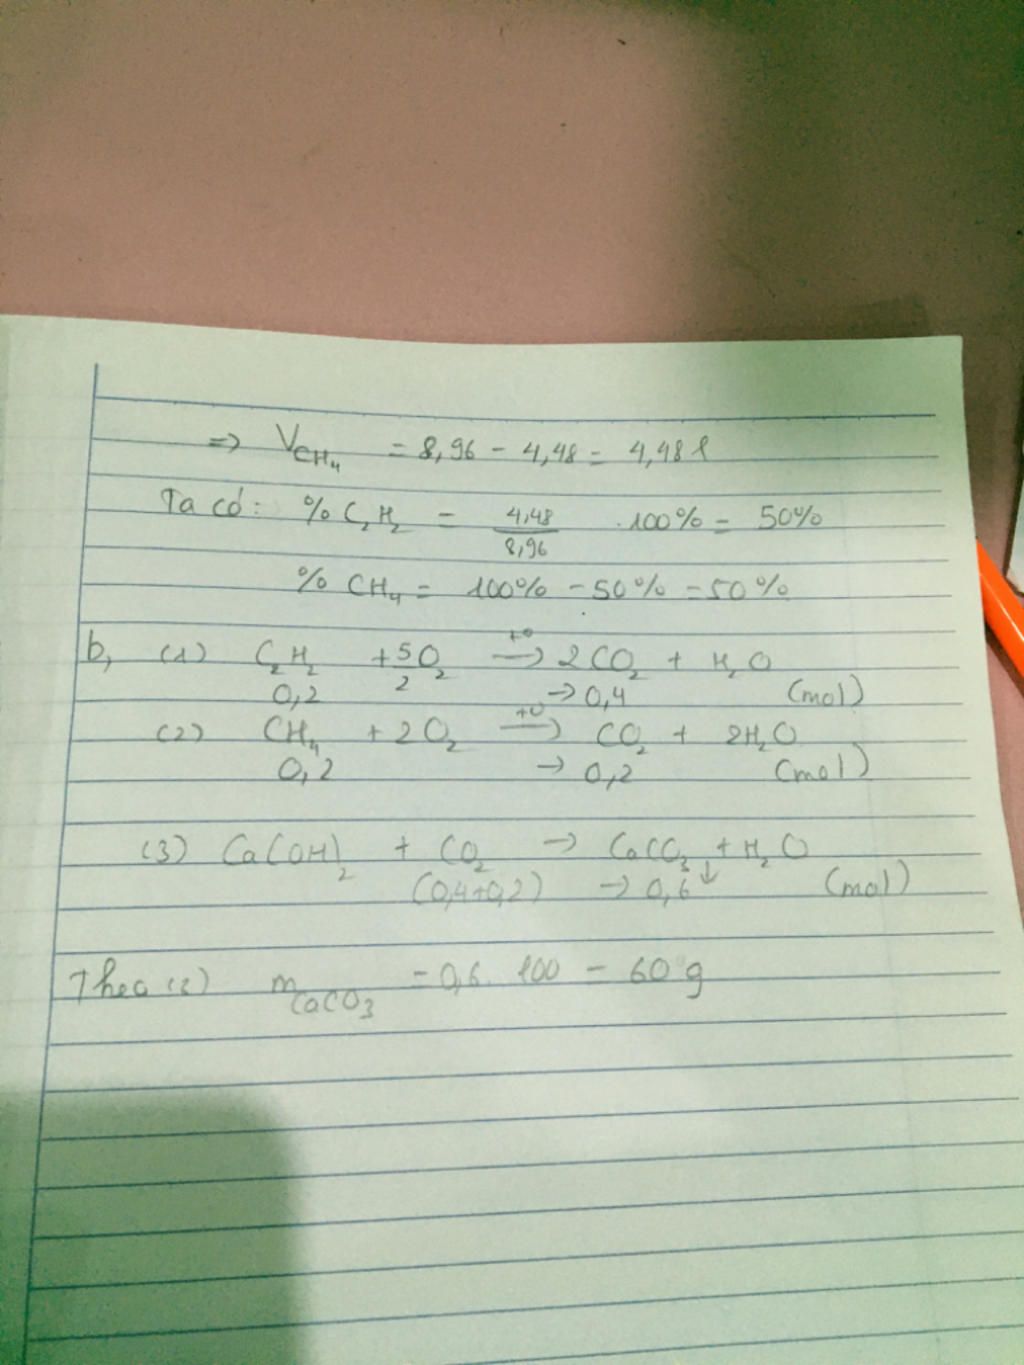 => V CH₄ = 8,96 - 4,48 = 4,48 l
Ta có: % C₂H₂ = 4,48/8,96 .100% = 50%
% CH₄ = 100% - 50% = 50%
b, (1) C₂H₂ + 5/2 O₂ t° → 2CO₂ + H₂O
0,2 → 0,4 (mol)
(2) CH₄ + 2O₂ t° → CO₂ + 2H₂O
0,2 → 0,2 (mol)
(3) Ca(OH)₂ + CO₂ → CaCO₃↓ + H₂O
(0,4+0,2) → 0,6 (mol)
Theo (2) m CaCO₃ = 0,6. 100 = 60 g